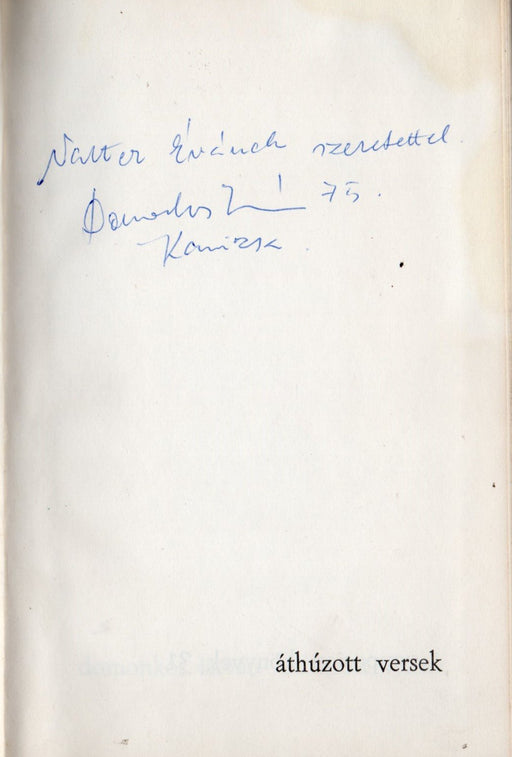 Natter Évának szeretettel.
Domonkos 75.
Kanizsa
áthúzott versek